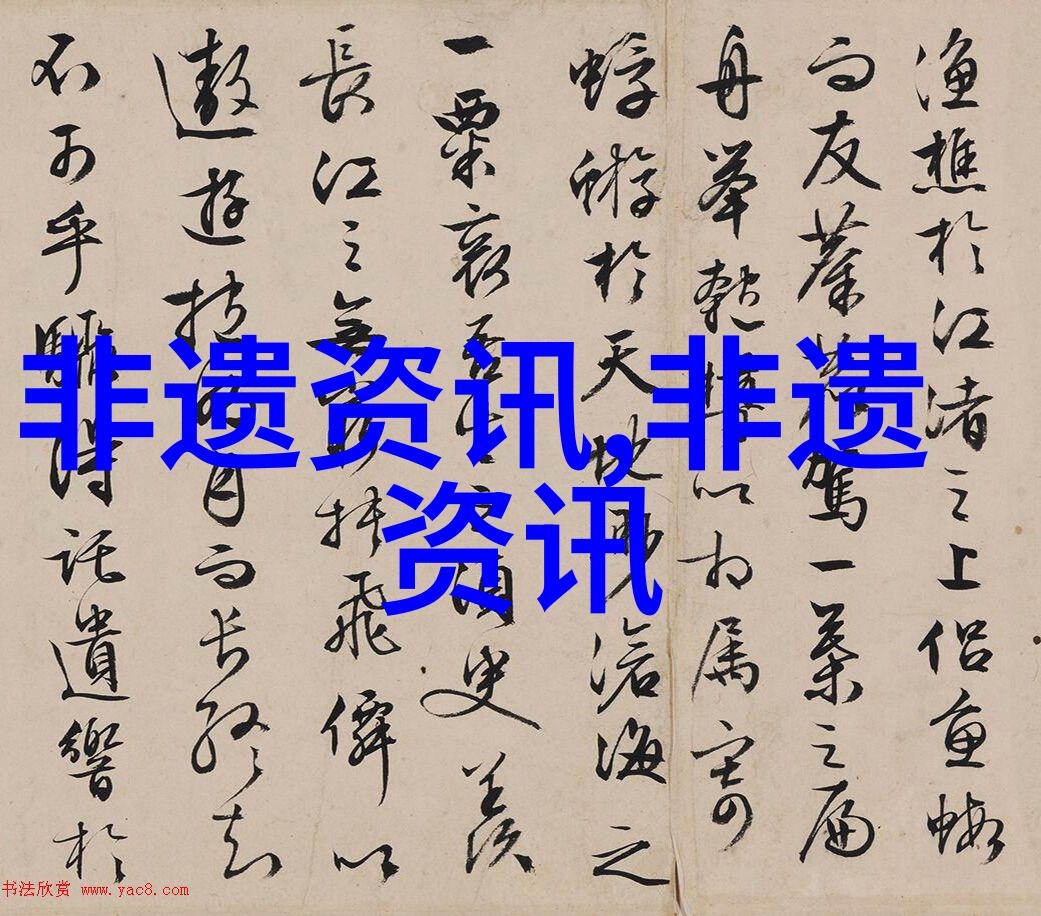 漁樵於江渚之上侣魚蝦
而友麋鹿駕一葉之扁
舟舉匏樽以相属寄
蜉蝣於天地眇滄海之
一粟哀吾生之須臾羨
長江之無窮挟飛僊以
遨遊抱明月而長終知
不可乎驟得託遺響於
非遗资讯,非遗
资讯
书法欣赏 www.yac8.com